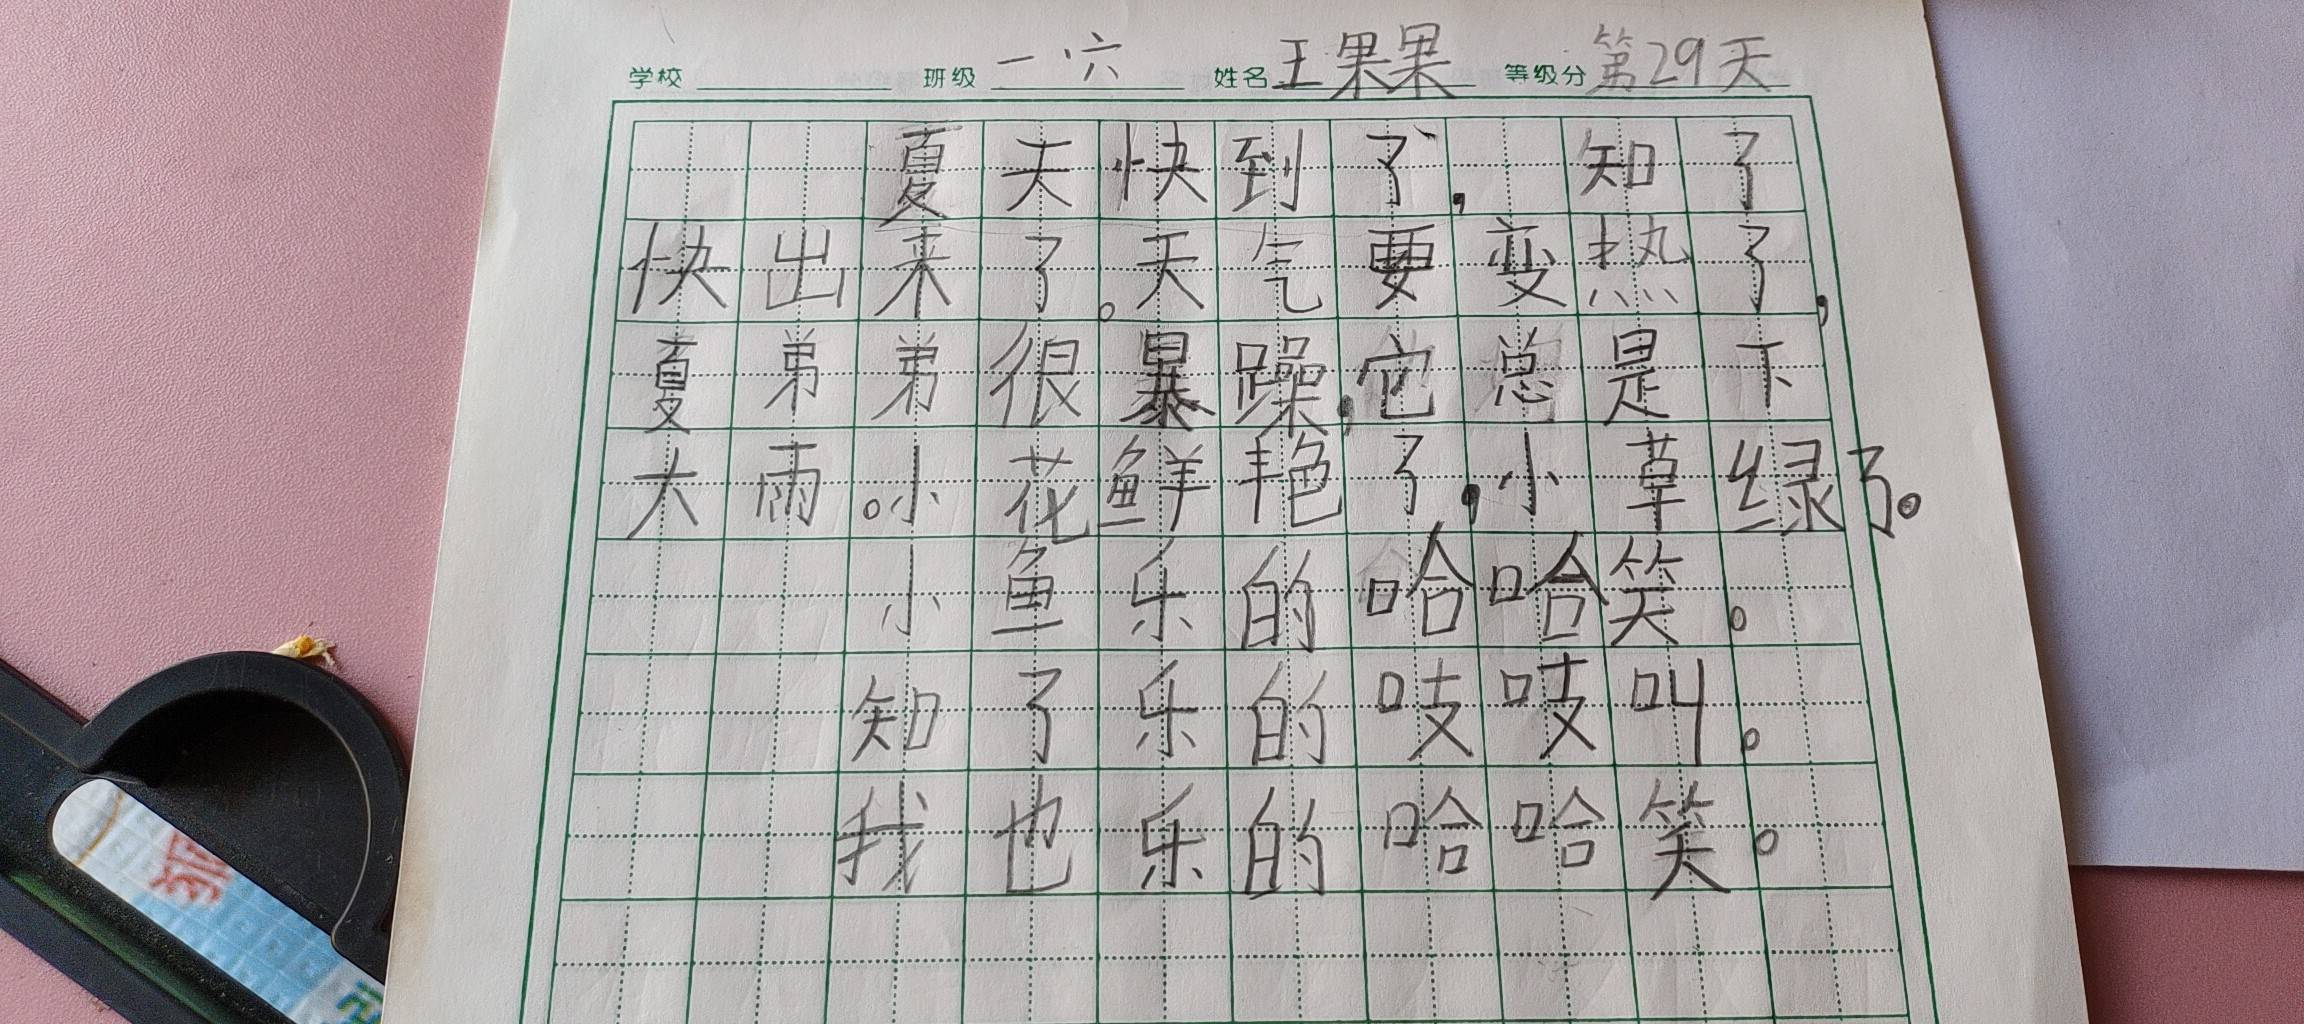 学校 班级 一六 姓名 王果果 等级分 第29天
夏天快到了，知了
快出来了。天气要变热了，
夏弟弟很暴躁，它总是下
大雨。小花鲜艳了，小草绿了。
小鱼乐的哈哈笑。
知了乐的吱吱叫。
我也乐的哈哈笑。